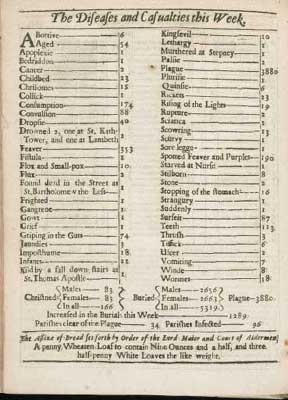 The Diseases and Casualties this Week.
Abortive 6
Aged 54
Apoplexie 1
Bedridden 1
Cancer 2
Childbed 23
Chrisomes 15
Collick 1
Consumption 174
Convulsion 88
Dropsie 40
Drowned 2, one at St. Kath-
Tower, and one at Lambeth
Feaver 353
Fistula 1
Flox and Small-pox 10
Flux 2
Found dead in the Street at
St. Bartholomew the Less 1
Frighted 1
Gangrene 1
Gowt 1
Grief 1
Griping in the Guts 74
Jaundies 3
Imposthume 18
Infants 21
Kild by a fall down stairs at
St. Thomas Apostle 1
Kingsevil 10
Lethargy 1
Murthered at Stepney 1
Palsie 2
Plague 3880
Plurisie 1
Quinsie 6
Rickets 23
Rising of the Lights 19
Rupture 2
Sciatica 1
Scowring 13
Scurvy 1
Sore legge 1
Spotted Feaver and Purples 190
Starved at Nurse 1
Stilborn 8
Stone 2
Stopping of the stomach 16
Strangury 1
Suddenly 1
Surfeit 87
Teeth 113
Thrush 3
Tissick 6
Ulcer 2
Vomiting 7
Winde 8
Wormes 18
Christned Males 83 Females 83 In all 166
Buried Males 2656 Females 2663 In all 5319
Plague 3880.
Increased in the Burials this Week 1289
Parishes clear of the Plague 34 Parishes Infected 96
The Assize of Bread set forth by Order of the Lord Maior and Court of Aldermen,
A penny Wheaten Loaf to contain Nine Ounces and a half, and three
half-penny White Loaves the like weight.